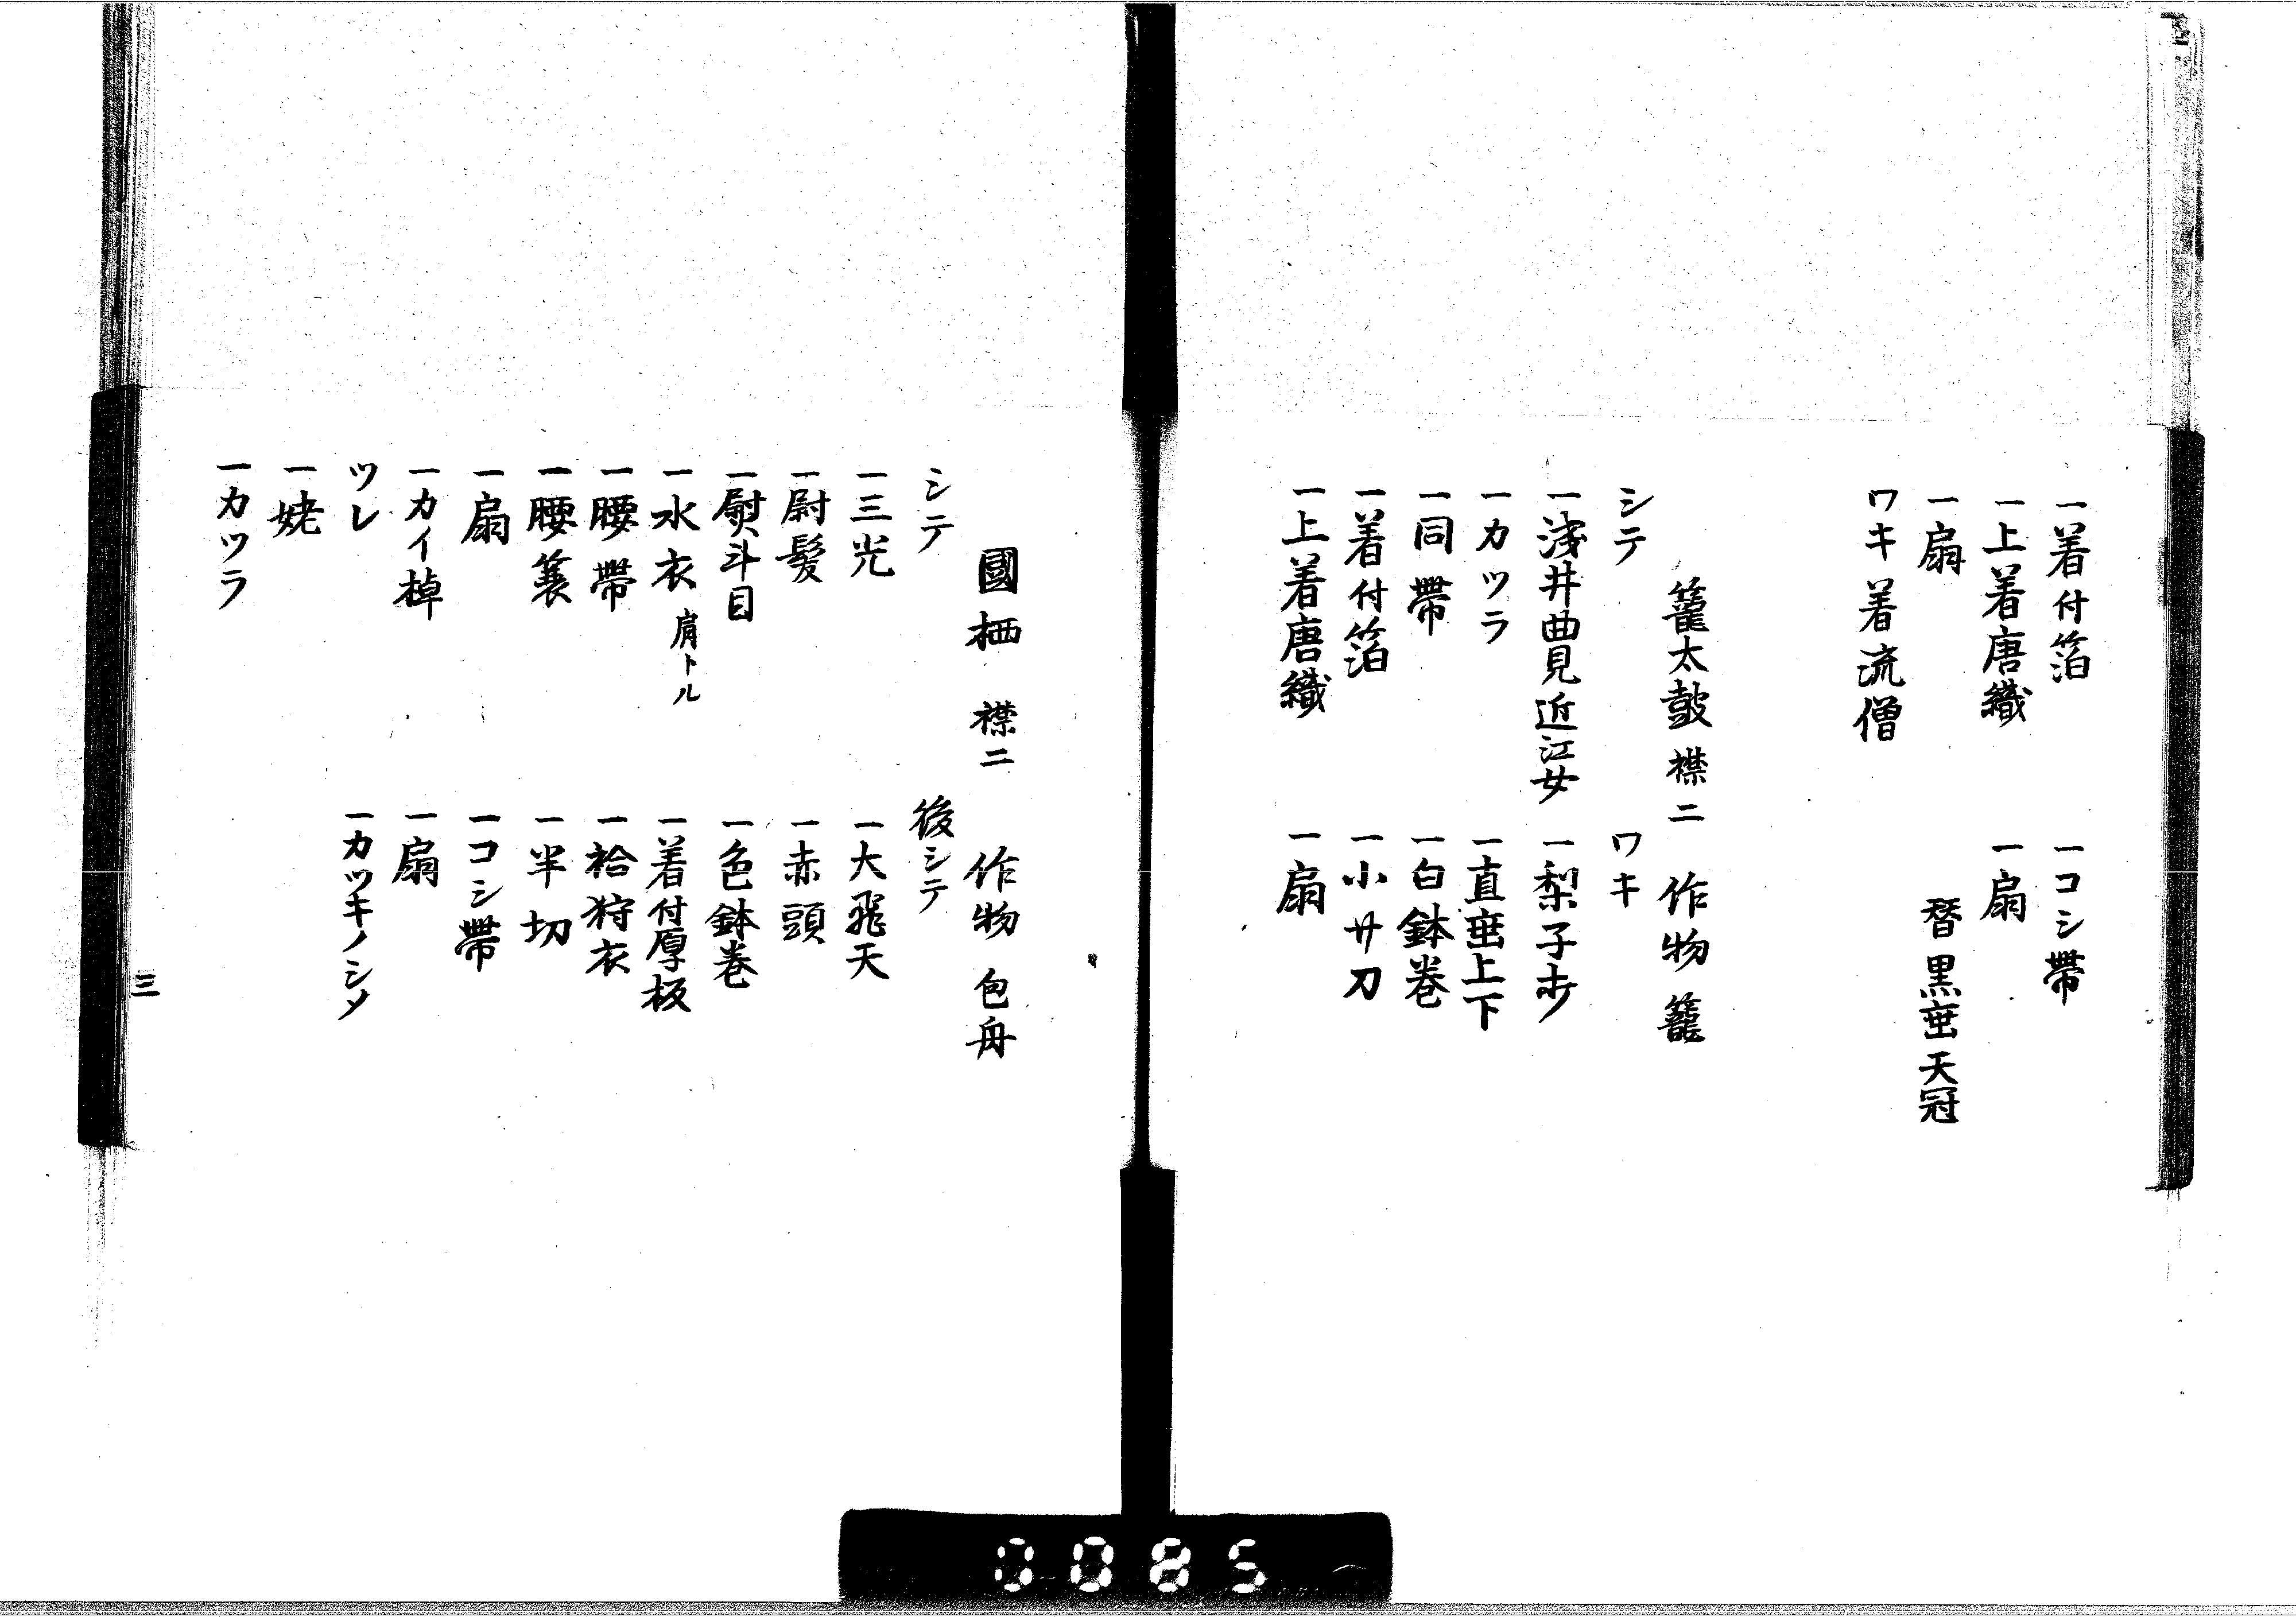 一着付箔　一コシ帶
一上着唐織　一扇
一扇　替黒垂天冠
ワキ着流僧
籠太鼓　襟二　作物　籠
シテ　ワキ
一淺井曲見近江女　一梨子打
一カツラ　一直垂上下
一同帶　一白鉢巻
一着付箔　一小サ刀
一上着唐織　一扇
國栖　襟二　作物　包舟
シテ　後シテ
一三光　一大飛天
一尉髪　一赤頭
一熨斗目　一色鉢巻
一水衣　肩トル　一着付厚板
一腰帶　一袷狩衣
一腰簑　一半切
一扇　一コシ帶
一カイ棹　一扇
ツレ　一カツキノシメ
一姥
一カツラ
三
0085